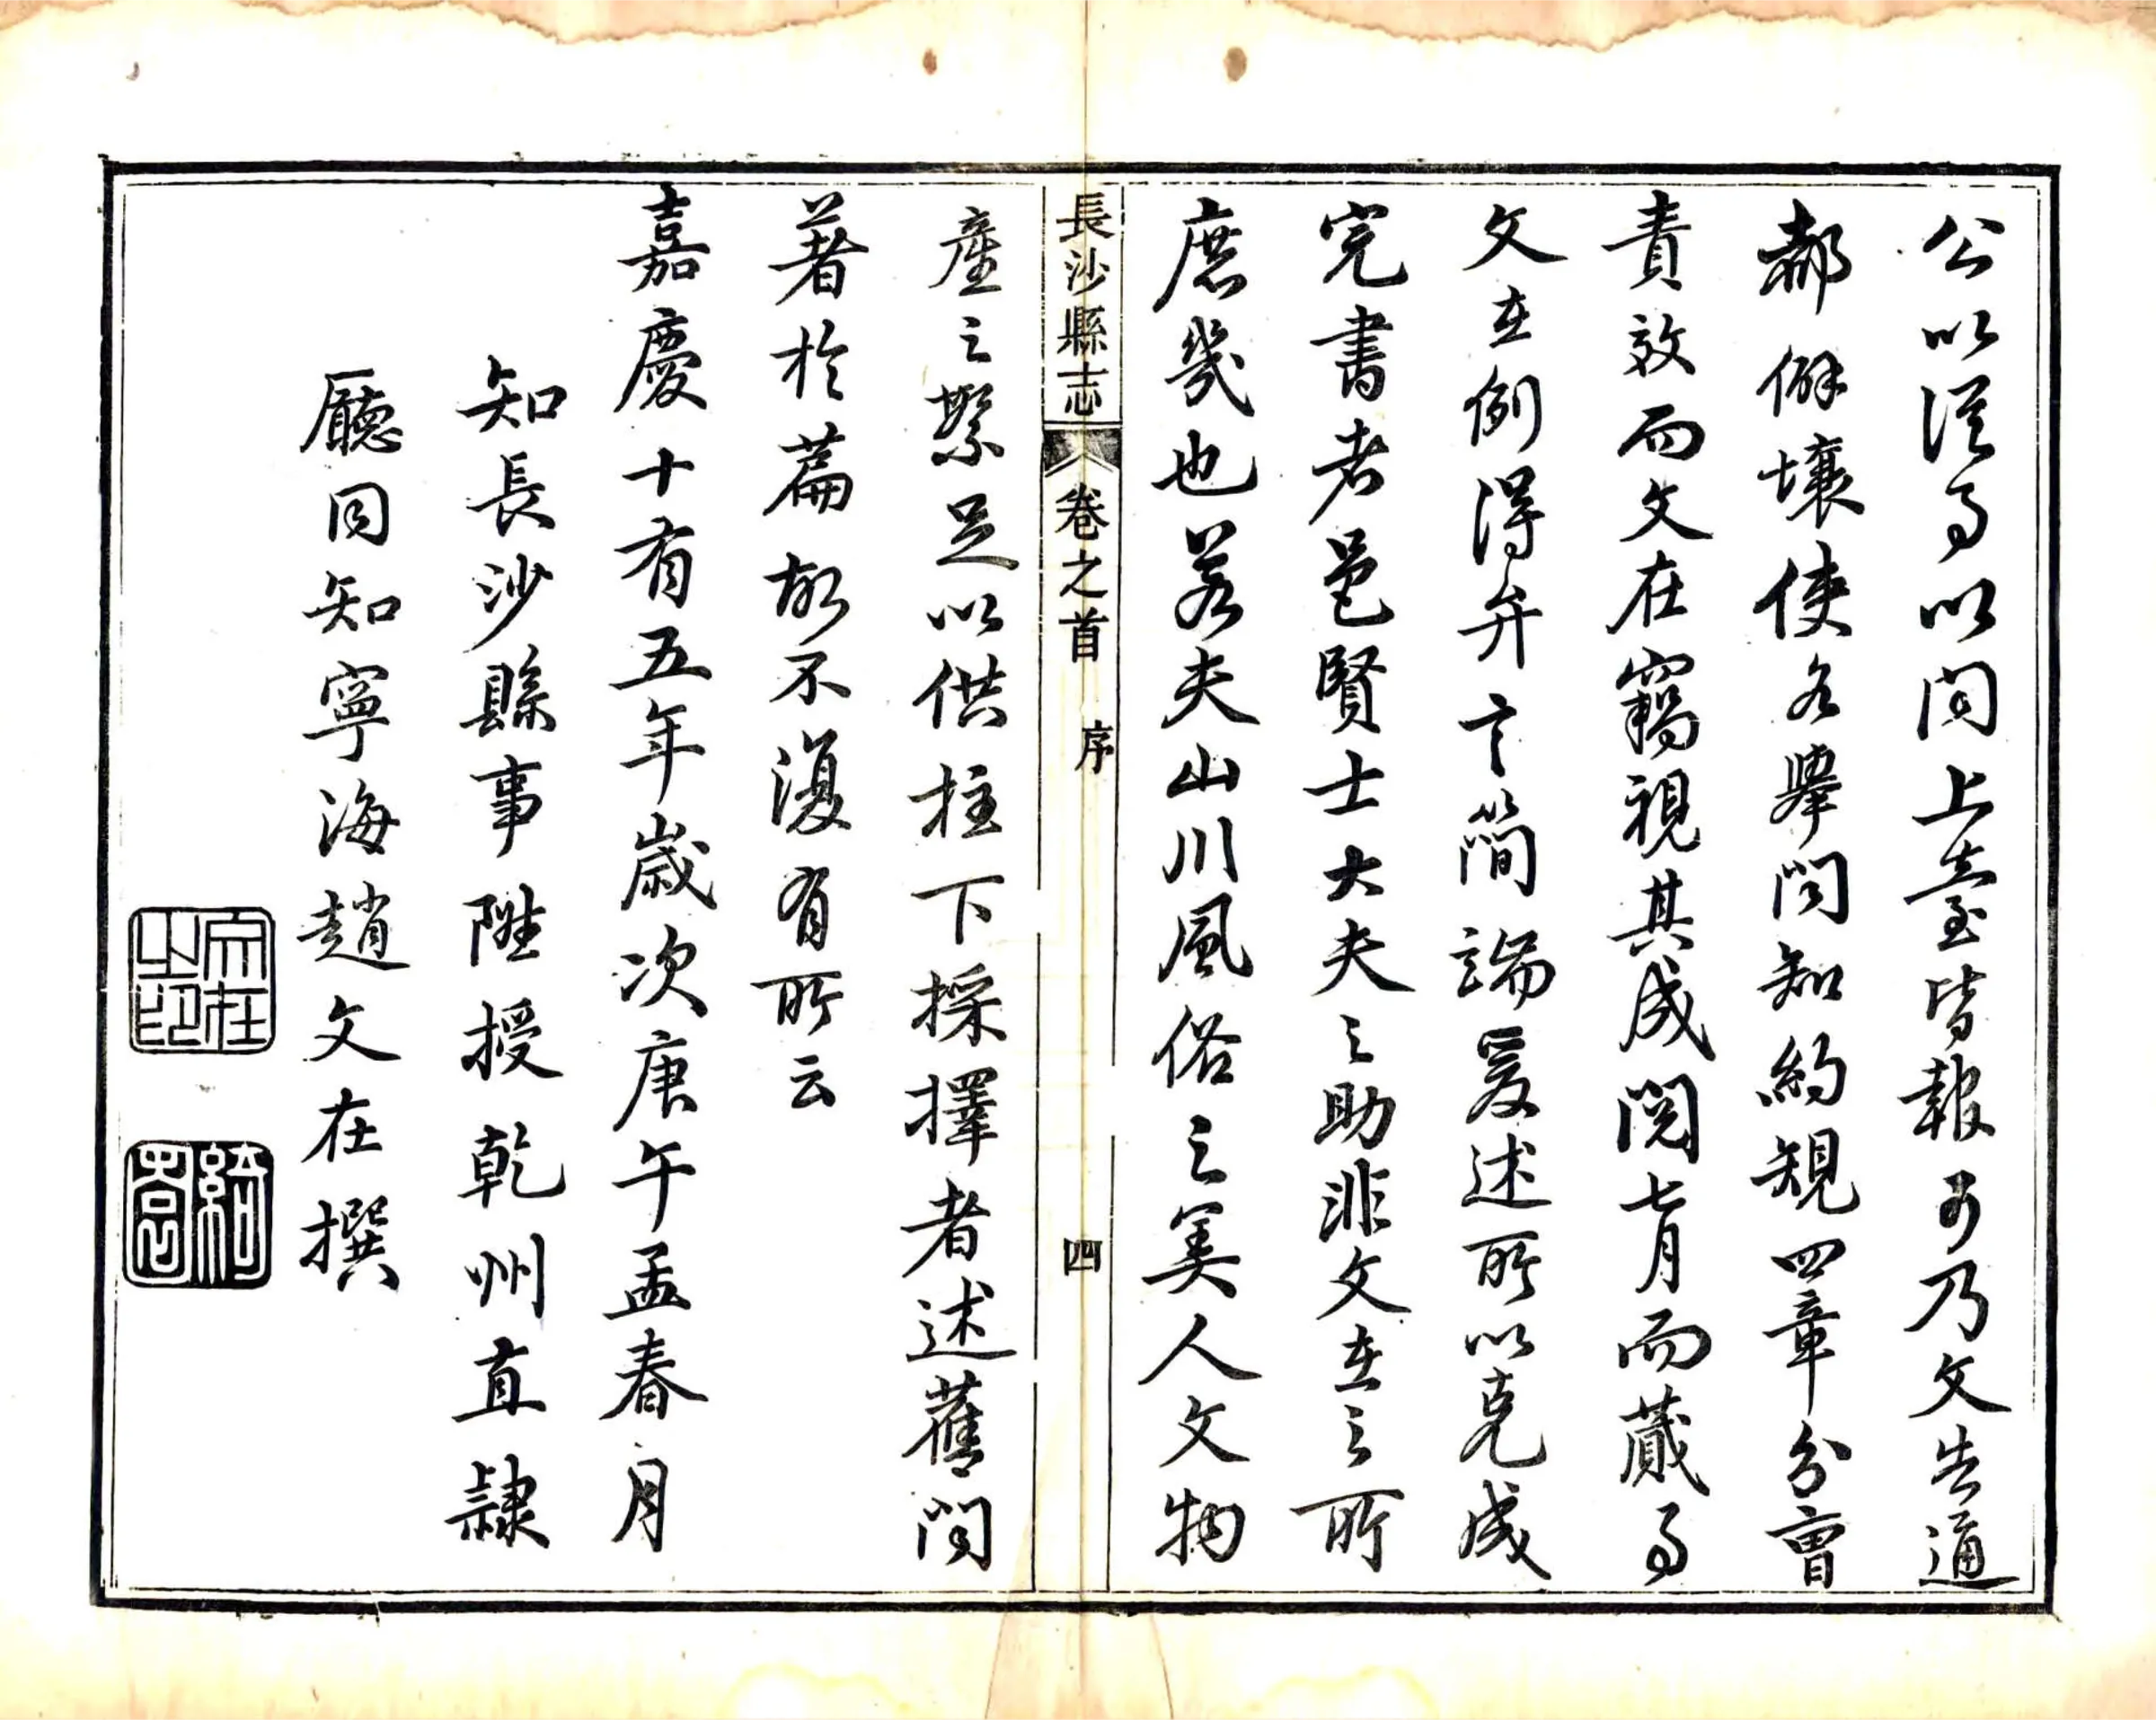 公以從事以聞上臺皆報可乃文告通
都僻壤使各舉聞知約規四章分曹
責效而文在竊視其成閱七月而蕆事
文在例得弁言簡端爰述所以克成
完書者邑賢士大夫之助非文在之所
庶幾也若夫山川風俗之美人文物
長沙縣志 卷之首 序 四
產之繁足以供柱下採擇者述舊聞
著於篇故不復有所云
嘉慶十有五年歲次庚午孟春月
知長沙縣事陞授乾州直隸
廳同知寧海趙文在撰
文在之印
綺園